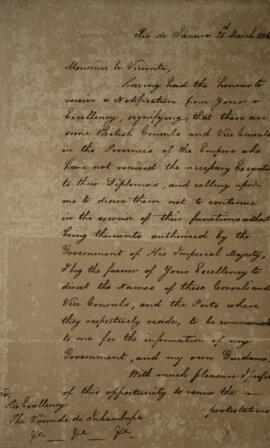 Rio de Janeiro 31st March 1826
Monsieur le Vicomte,
Having had the honour to
receive a Notification from Your
Excellency, signifying, that there are
some British Consuls and Vice Consuls
in the Provinces of the Empire who
have not received the necessary Exequatur
to their Diplomas, and calling upon
me to desire them not to continue
in the exercise of their functions without
being thereunto authorized by the
Government of His Imperial Majesty,
I beg the favor of Your Excellency to
direct the Names of these Consuls and
Vice Consuls, and the Ports where
they respectively reside, to be communicated
to me for the information of my
Government, and my own Guidance.
With much pleasure I
of this opportunity to renew the
protestations
His Excellency
The Viconde de Inhambupe
&c _ &c _ &c